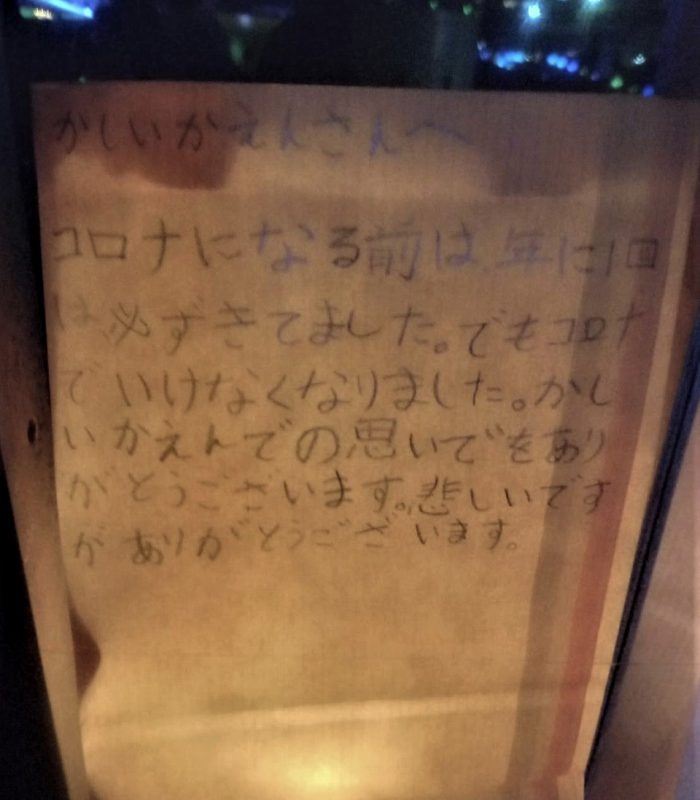 かしいかえんさんへ
コロナになる前は、年に1回
は必ずきてました。でもコロナ
でいけなくなりました。かし
いかえんでの思いでをあり
がとうございます。悲しいです
がありがとうございます。